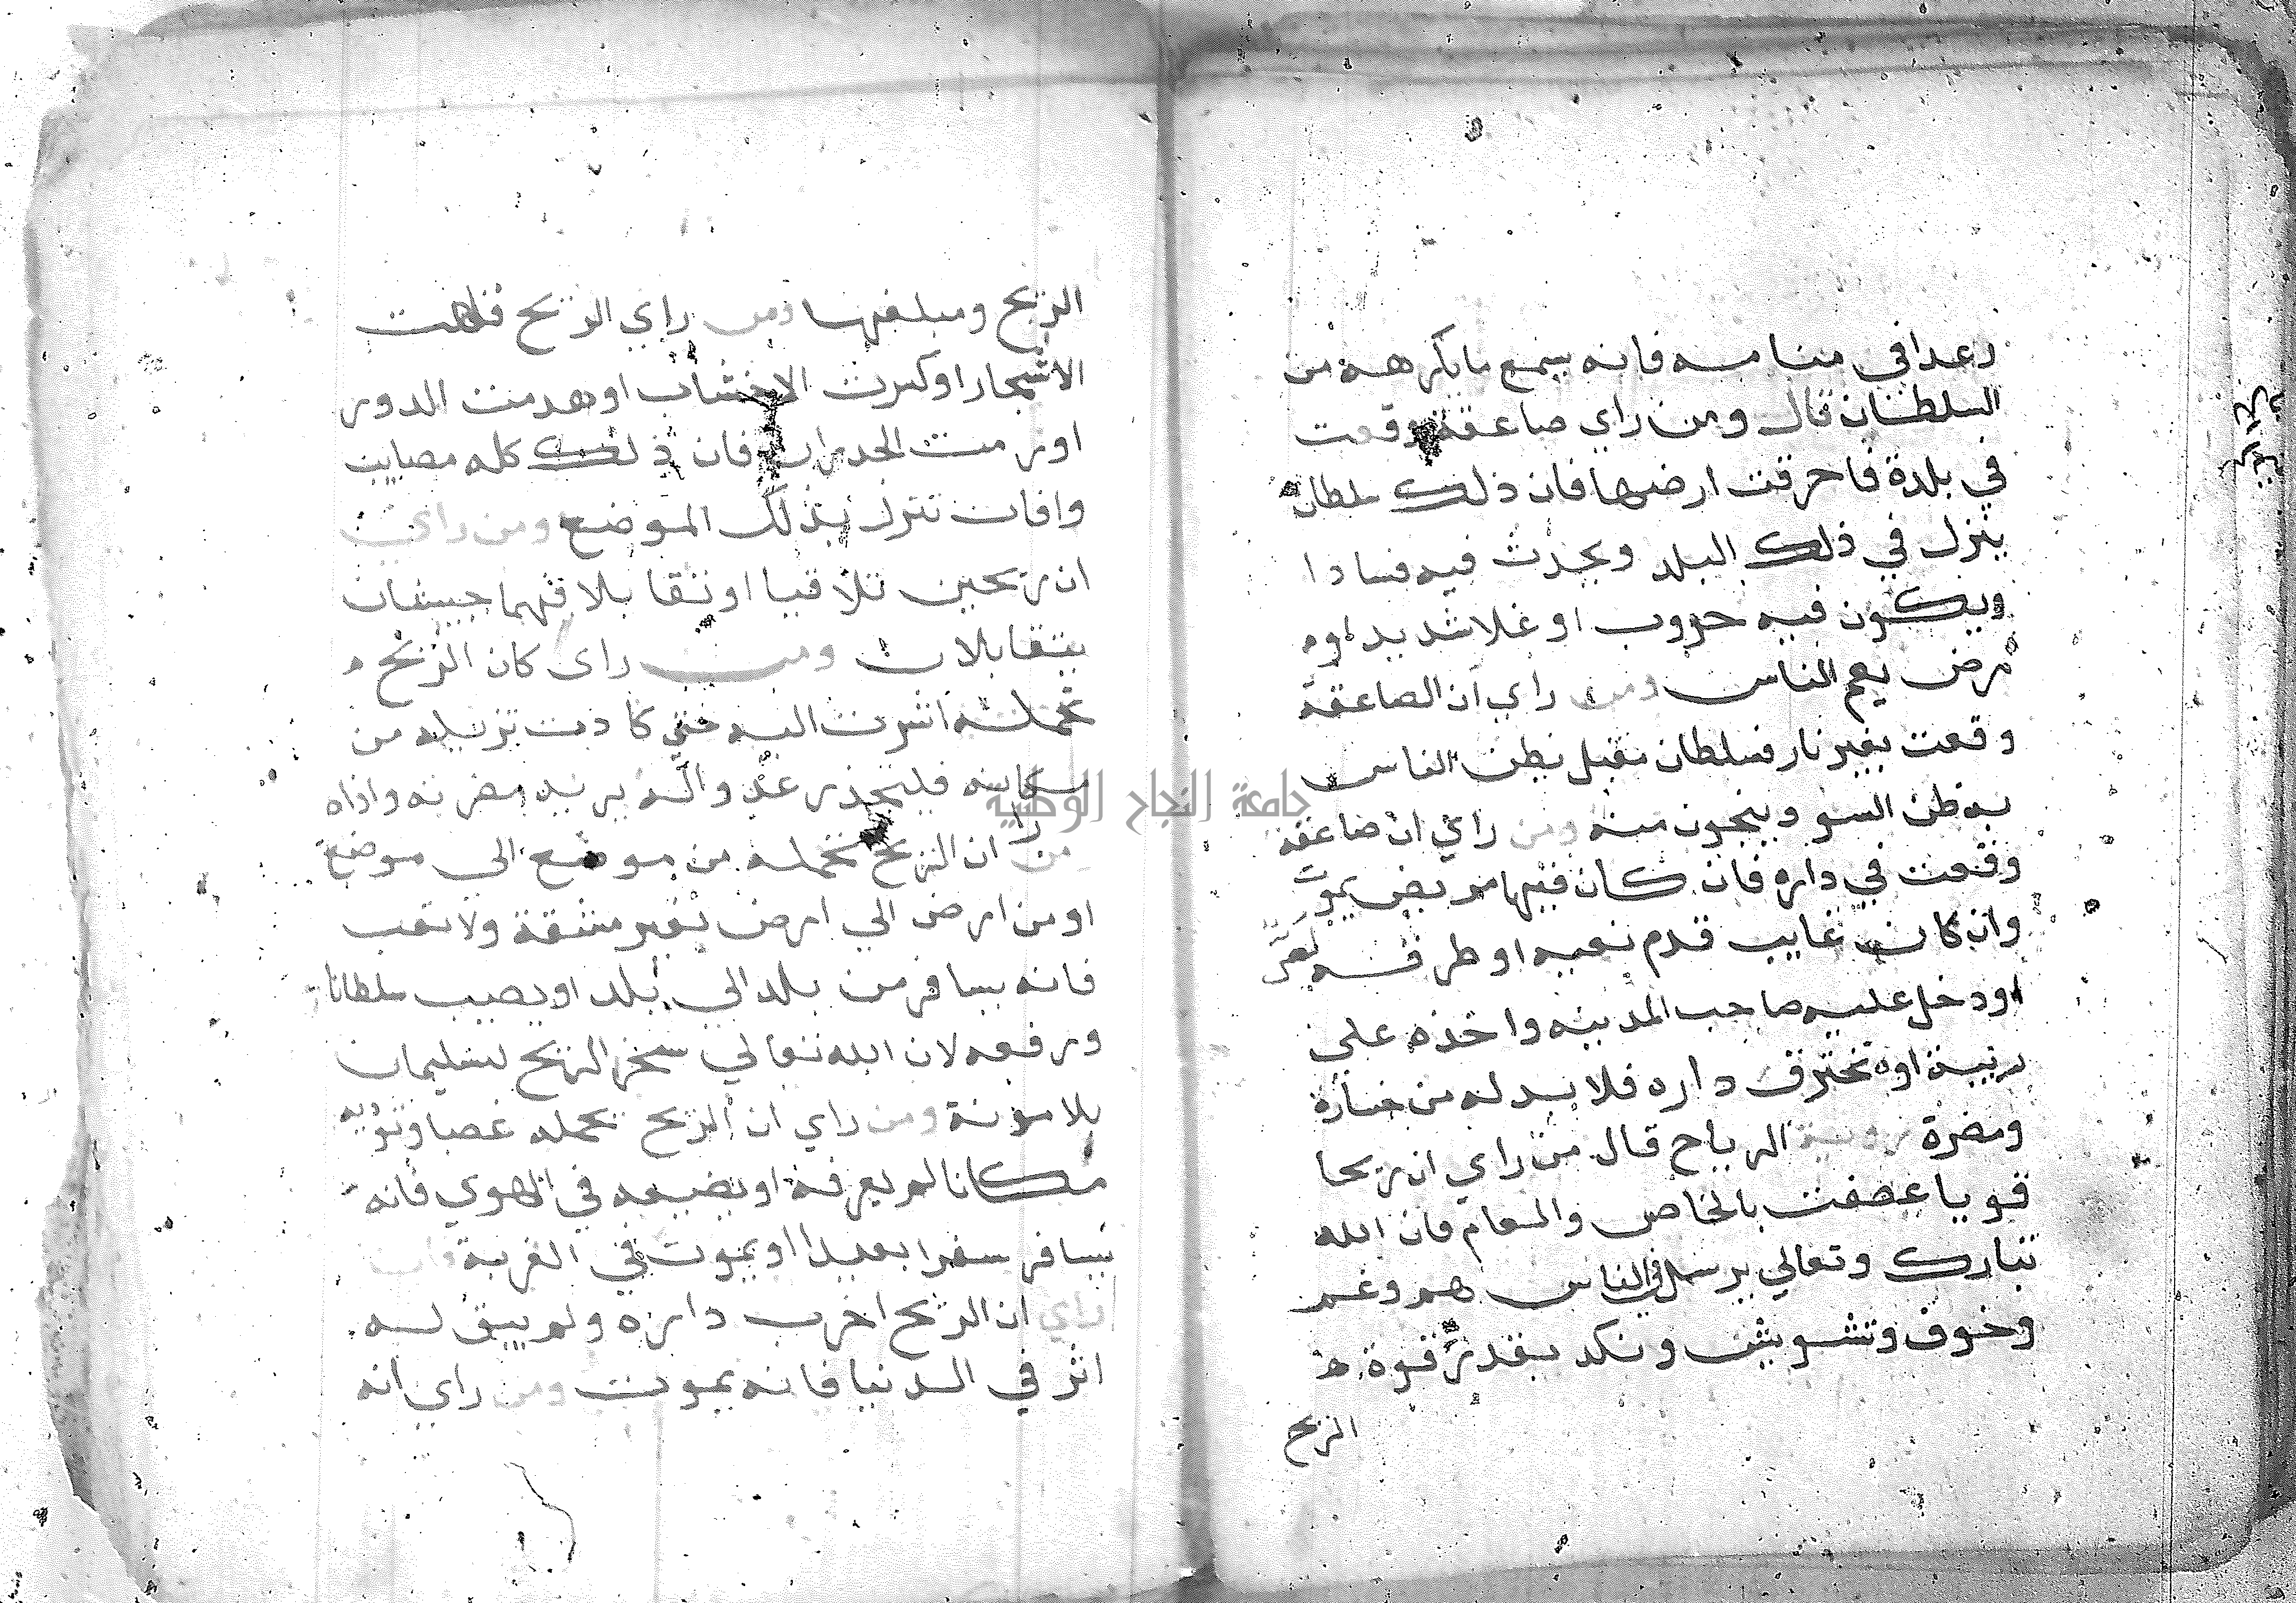 رعدا في منامه فانه يسمع ما يكرهه من
السلطان قال ومن راي صاعقة وقعت
في بلدة فاحرقت ارضها فان ذلك سلطان
ينزل في ذلك البلد ويحدث فيه فسادا
ويكون فيه حروب او غلا شديد او م
مرض يعم الناس ومن راي ان الصاعقة
وقعت بغير نار فسلطان مقبل يظن الناس
به ظن السو وينجون منه ومن راي ان صاعقة
وقعت في داره فان كان فيها مريض يموت
وان كان غايب قدم نعيه او طرقه
او دخل عليه صاحب المدينه واخذه علي
ريبة او تحترق داره فلا بد له من خسارة
ومضرة روية الرياح قال من راي ان ريحا
قويا عصفت بالخاص والعام فان الله
تبارك وتعالي يرسل في الناس هم وغم
وخوف وتشويش ونكد بقدر قوة
الريح
الريح ومبلغها ومن راي الريح قلعت
الاشجار او كسرت الاخشاب او هدمت الدور
او رمت الجدران فان ذلك كله مصايب
وافات تنزل بذلك الموضع ومن راي
ان ريحين تلاقيا او تقابلا فهما جيشان
يتقابلان ومن راى كان الريح
تحمله اشرت اليه حتي كادت تزيله من
مكانه فليحذر عدو الله يريد مضرته واذاه
من را ان الريح تحمله من موضع الي موضع
او من ارض الي ارض بغير مشقة ولا تعب
فانه يسافر من بلد الي بلد او يصيب سلطانا
ورفعه لان الله تعالي سخر الريح لسليمان
بلا مونة ومن راي ان الريح تحمله غصبا وتوديه
مكانا لم يعرفه او يضيعه في الهوي فانه
يسافر سفرا بعيدا او يموت في الغربة
راي ان الريح اخرب داره ولم يبق له
اثر في الدنيا فانه يموت ومن راي انه
جامعة النجاح الوطنية